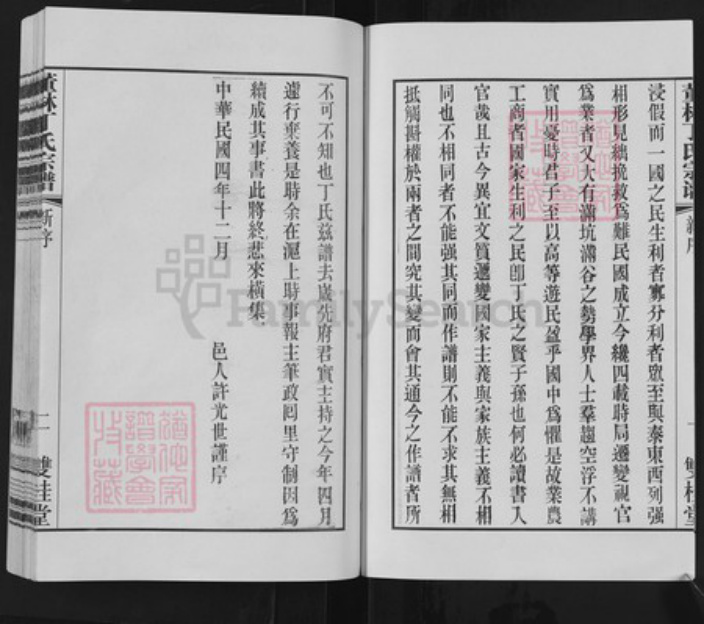 浸假而一國之民生利者寡分利者眾至與泰東西列强
相形見絀挽救爲難民國成立今纔四載時局遷變視官
爲業者又大有滿坑滿谷之勢學界人士羣趨空浮不講
實用憂時君子至以高等遊民盈乎國中爲懼是故業農
工商者國家生利之民卽丁氏之賢子孫也何必讀書入
官哉且古今異宜文質遞變國家主義與家族主義不相
同也不相同者不能强其同而作譜則不能不求其無相
抵觸斟權於兩者之間究其變而會其通今之作譜者所
不可不知也丁氏茲譜去歲先府君實主持之今年四月
遽行棄養是時余在滬上時事報主筆政囘里守制因爲
續成其事書此將終悲來橫集
中華民國四年十二月
邑人許光世謹序
丁氏宗譜
新序
二
雙桂堂
FamilySearch